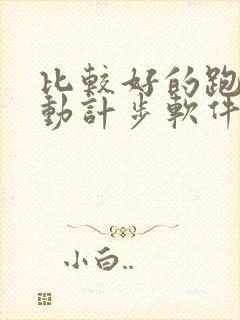 比較好的跑
動計步軟件
小白..